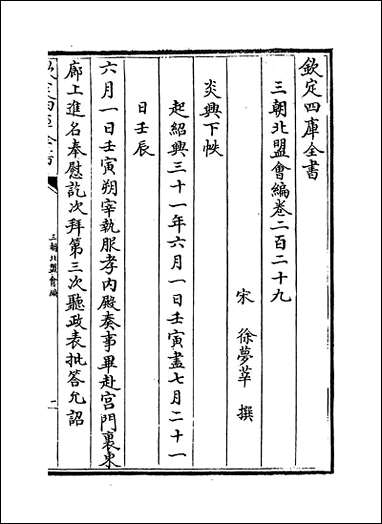 欽定四庫全書
三朝北盟會編卷二百二十九
宋 徐夢莘 撰
炎興下帙
起紹興三十一年六月一日壬寅盡七月二十一
日壬辰
六月一日壬寅朔宰執服孝內殿奏事畢赴宮門裏東
廊上進名奉慰訖次拜第三次聽政表批答允詔
欽定四庫全書
三朝北盟會編